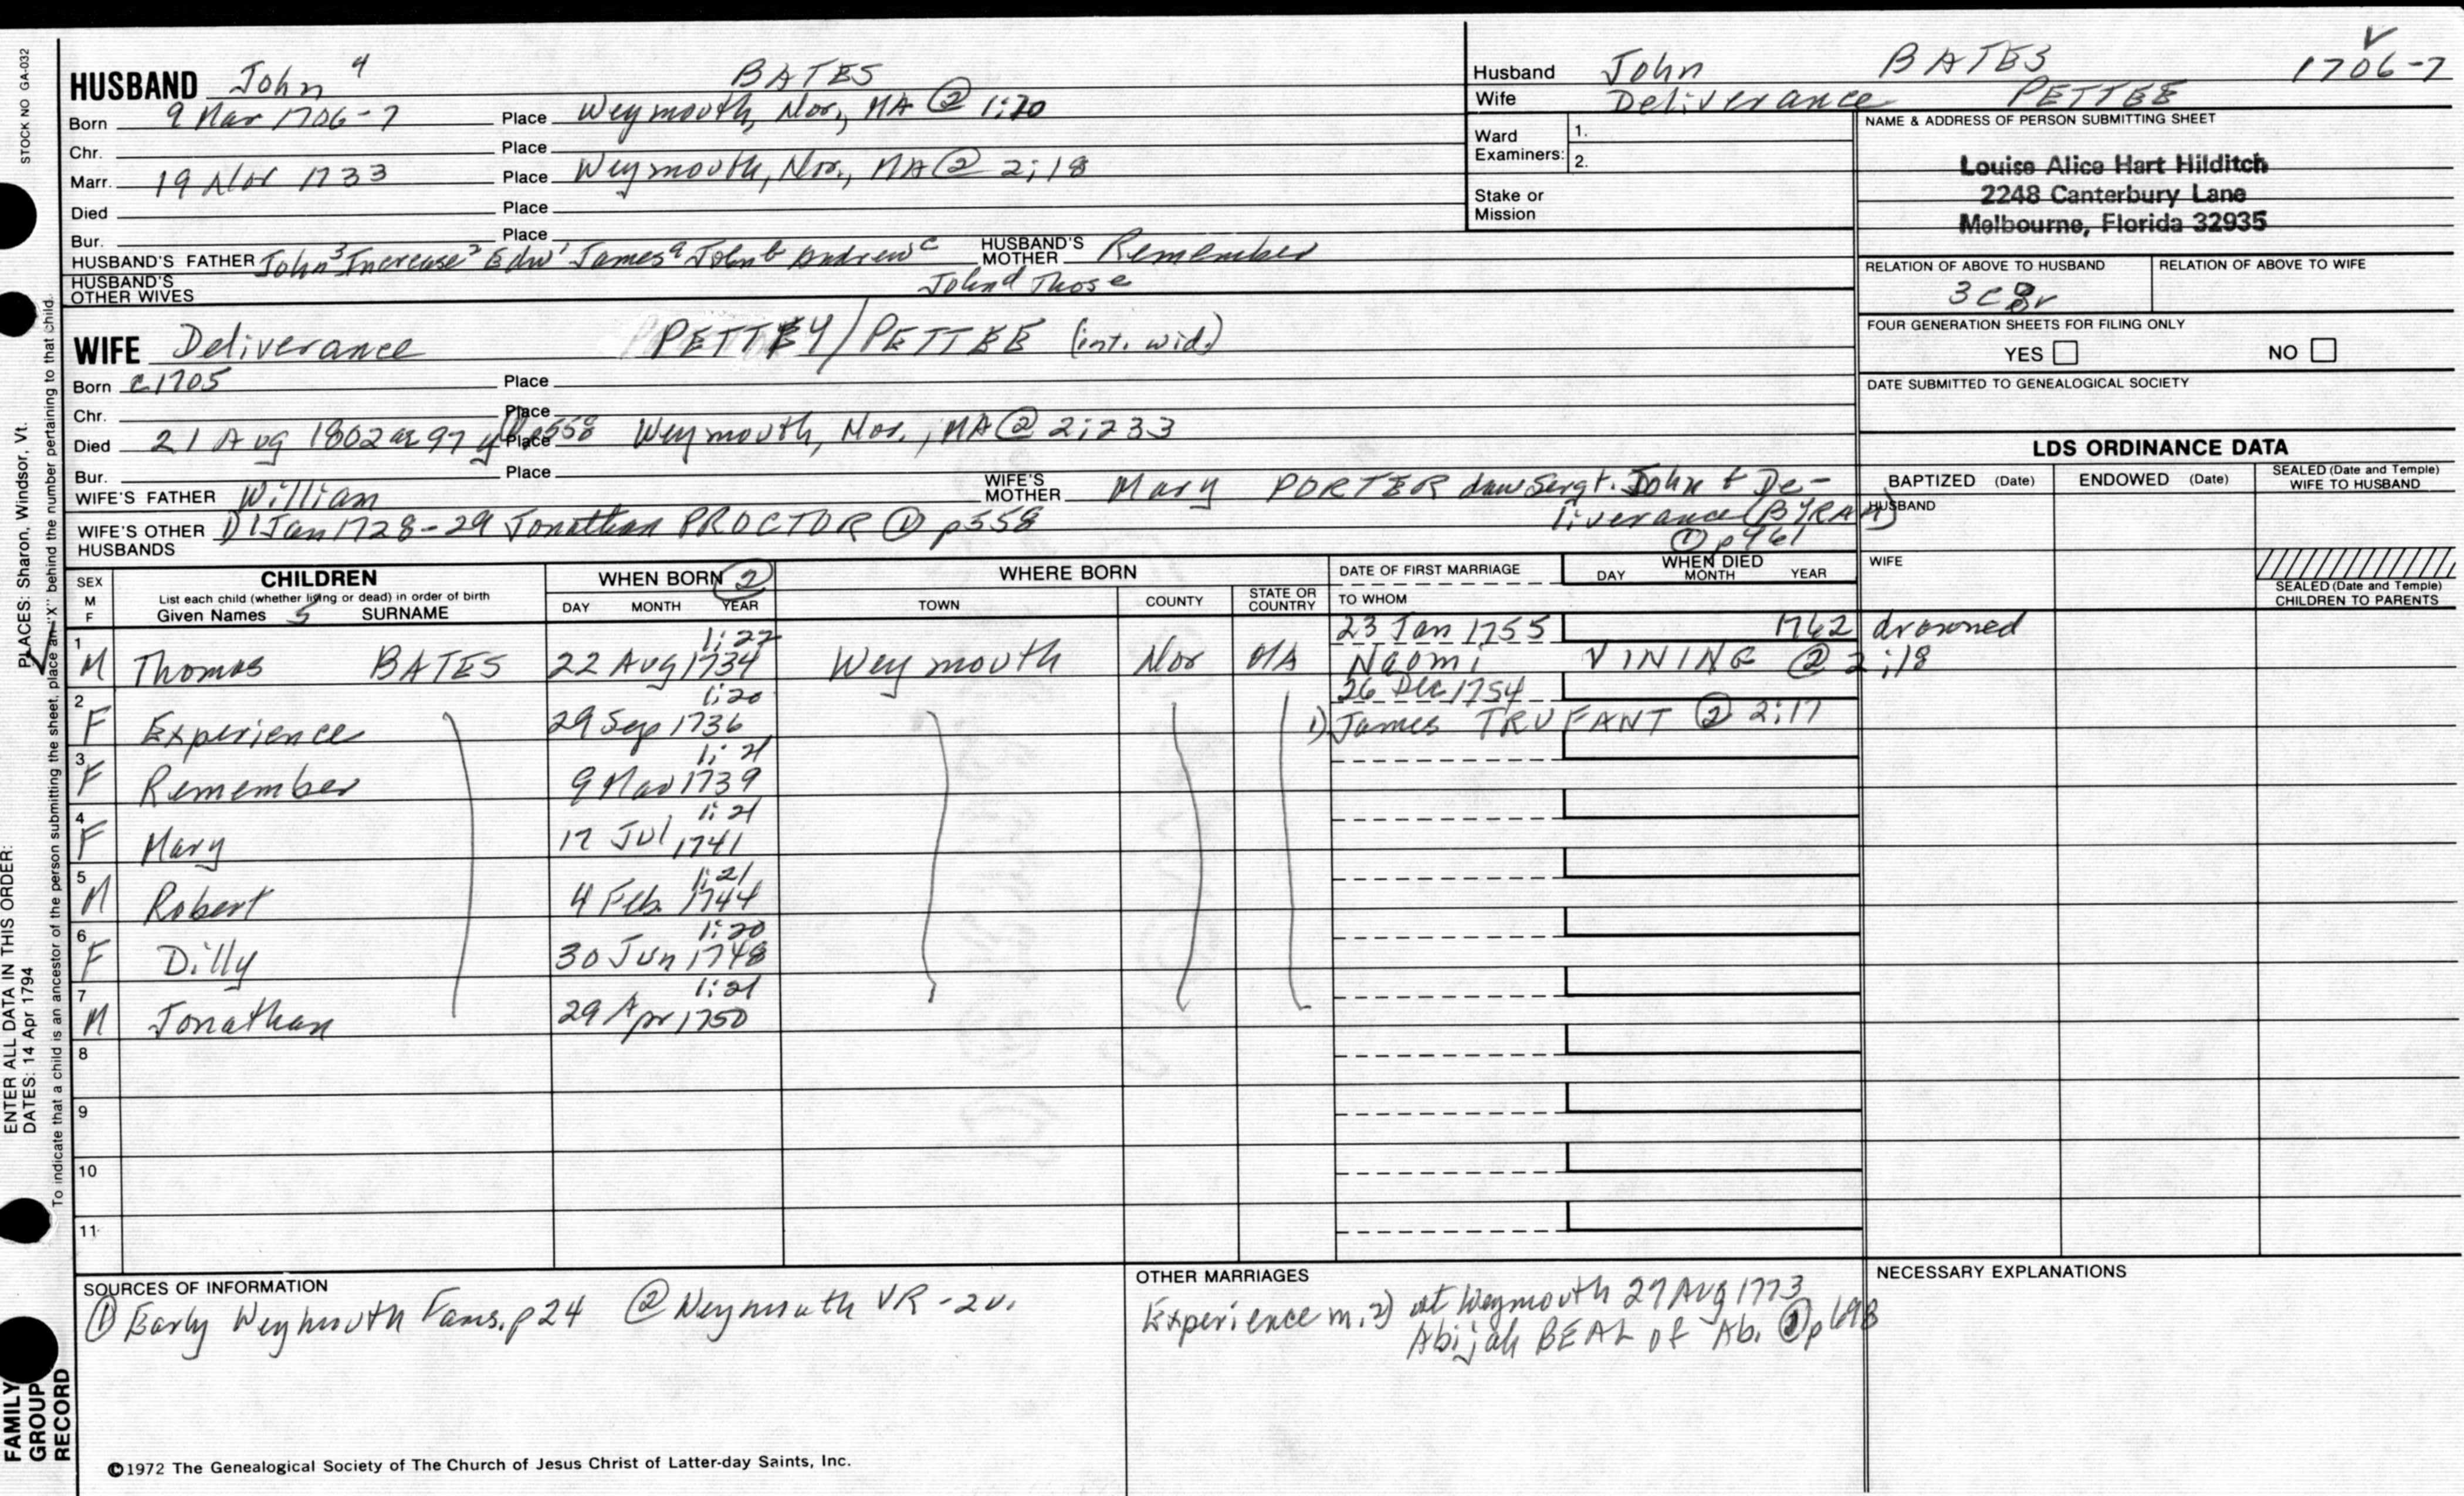 STOCK NO GA-032
HUSBAND John 4 BATES
Born 9 Mar 1706-7 Place Weymouth, Nor, MA @ 1:20
Chr. Place
Marr. 19 Nov 1733 Place Weymouth, Nor., MA ② 2:18
Died Place
Bur. Place
HUSBAND'S FATHER John³ Increase² Edw¹ James a John b Andrew c HUSBAND'S MOTHER Remember
John d Thos e
HUSBAND'S OTHER WIVES
WIFE Deliverance PETTEY/PETTEE (int. wid.)
Born c1705 Place
Chr. Place
Died 21 Aug 1802 ae 97 y ① p558 Place Weymouth, Nor., MA ② 2:233
Bur. Place
WIFE'S FATHER William WIFE'S MOTHER Mary PORTER dau Sergt. John & De-
liverance (BYRAM)
① p461
WIFE'S OTHER HUSBANDS 1) 1 Jan 1728-29 Jonathan PROCTOR ① p558
Husband John BATES 1706-7
Wife Deliverance PETTEE
Ward Examiners: 1.
2.
Stake or Mission
NAME & ADDRESS OF PERSON SUBMITTING SHEET
Louise Alice Hart Hilditch
2248 Canterbury Lane
Melbourne, Florida 32935
RELATION OF ABOVE TO HUSBAND RELATION OF ABOVE TO WIFE
3c 8r
FOUR GENERATION SHEETS FOR FILING ONLY
YES NO
DATE SUBMITTED TO GENEALOGICAL SOCIETY
LDS ORDINANCE DATA
BAPTIZED (Date) ENDOWED (Date) SEALED (Date and Temple) WIFE TO HUSBAND
HUSBAND
WIFE
SEALED (Date and Temple) CHILDREN TO PARENTS
SEX M F
CHILDREN
List each child (whether living or dead) in order of birth
Given Names 5 SURNAME
WHEN BORN ②
DAY MONTH YEAR
WHERE BORN
TOWN COUNTY STATE OR COUNTRY
DATE OF FIRST MARRIAGE
TO WHOM
WHEN DIED
DAY MONTH YEAR
1:22 23 Jan 1755 1762 drowned
1 M Thomas BATES 22 Aug 1734 Weymouth Nor MA Naomi VINING @ 2:18
1:20 26 Dec 1754
2 F Experience 29 Sep 1736 1) James TRUFANT ② 2:17
1:21
3 F Remember 9 Mar 1739
1:21
4 F Mary 17 Jul 1741
1:21
5 M Robert 4 Feb 1744
1:20
6 F Dilly 30 Jun 1748
1:21
7 M Jonathan 29 Apr 1750
8
9
10
11
SOURCES OF INFORMATION
① Early Weymouth Fams. p24 ② Weymouth VR - 2v.
OTHER MARRIAGES
Experience m. 2) at Weymouth 27 Aug 1773
Abijah BEAL of Ab. ① p698
NECESSARY EXPLANATIONS
©1972 The Genealogical Society of The Church of Jesus Christ of Latter-day Saints, Inc.
ENTER ALL DATA IN THIS ORDER:
DATES: 14 Apr 1794 PLACES: Sharon, Windsor, Vt.
To indicate that a child is an ancestor of the person submitting the sheet, place an "X" behind the number pertaining to that child.
FAMILY GROUP RECORD